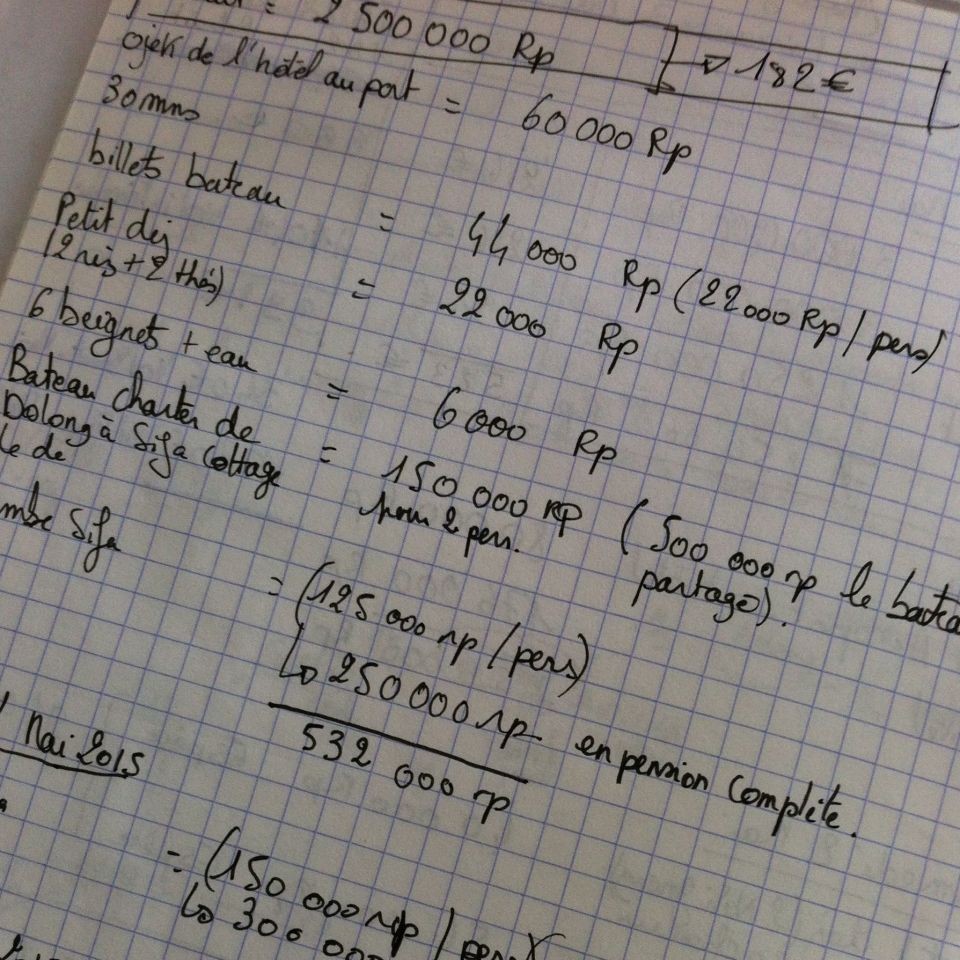 = 2 500 000 Rp → 182 €
ojek de l'hôtel au port = 60 000 Rp
30 mns
billets bateau = 44 000 Rp (22 000 Rp / pers)
Petit dej = 22 000 Rp
(2 riz + 2 thés)
6 beignets + eau = 6 000 Rp
Bateau charter de = 150 000 rp (500 000 rp le
Dolong à Sifa Cottage pour 2 pers. partagé).
le de
Sifa
= (125 000 rp / pers)
↳ 250 000 rp en pension complète.
532 000 rp
Mai 2015
= (150 000 rp / pers)
↳ 300 000